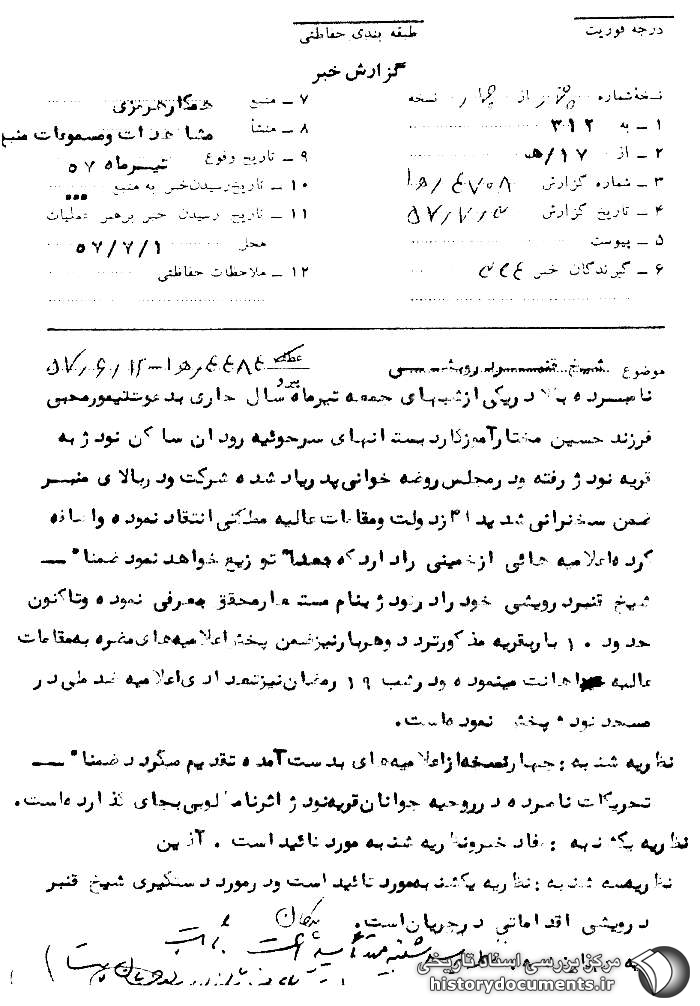 درجه فوریت
طبقه بندی حفاظتی
گزارش خبر
نسخهٔ شماره از چهار نسخه
۱ ـ به ۳۱۲
۲ ـ از ۱۷/ﻫ
۳ ـ شماره گزارش
۴ ـ تاریخ گزارش
۵ ـ پیوست
۶ ـ گیرندگان خبر
۷ ـ منبع همکار هرمزی
۸ ـ منشأ مشاهدات ومسموعات منبع
۹ ـ تاریخ وقوع تیرماه ۵۷
۱۰ ـ تاریخ رسیدن خبر به منبع
۱۱ ـ تاریخ رسیدن خبر برهبر عملیات
محل ۵۷/۷/۱
۱۲ ـ ملاحظات حفاظتی
موضوع شیخ قنبر درویشی عطف
پیرو
نامبرده بالا در یکی از شبهای جمعه تیرماه سال جاری بدعوت تیمور محبی
فرزند حسین مختار آموزگار دبستانهای سرجوئیه رودان ساکن نودژ به
قریه نودژ رفته ودر مجلس روضه خوانی پدر یاد شده شرکت ودر بالای منبر
ضمن سخنرانی شدید از دولت ومقامات عالیه مملکتی انتقاد نموده واضافه
کرده اعلامیه هائی ازخمینی را دارد که بعدا" توزیع خواهد نمود ضمنا" ــ
شیخ قنبر درویشی خود را در نودژ بنام مستعار محقق معرفی نموده وتاکنون
حدود ۱۰ بار بقریه مذکور تردد وهر بار نیز ضمن پخش اعلامیه های مضره به مقامات
عالیه اهانت مینموده ودر شب ۱۹ رمضان نیز تعدادی اعلامیه ضد ملی در
مسجد نودژ پخش نموده است.
نظریه شنبه : چهار نسخه از اعلامیه های بدست آمده تقدیم میگردد ضمنا" ــ
تحریکات نامبرده در روحیه جوانان قریه نودژ اثر نامطلوبی بجای گذارده است.
نظریه یکشنبه : مفاد خبر ونظریه شنبه مورد تائید است . آذین
نظریه سه شنبه : نظریه یکشنبه مورد تائید است ودر مورد دستگیری شیخ قنبر
درویشی اقداماتی در جریان است.
مرکز بررسی اسناد تاریخی
historydocuments.ir